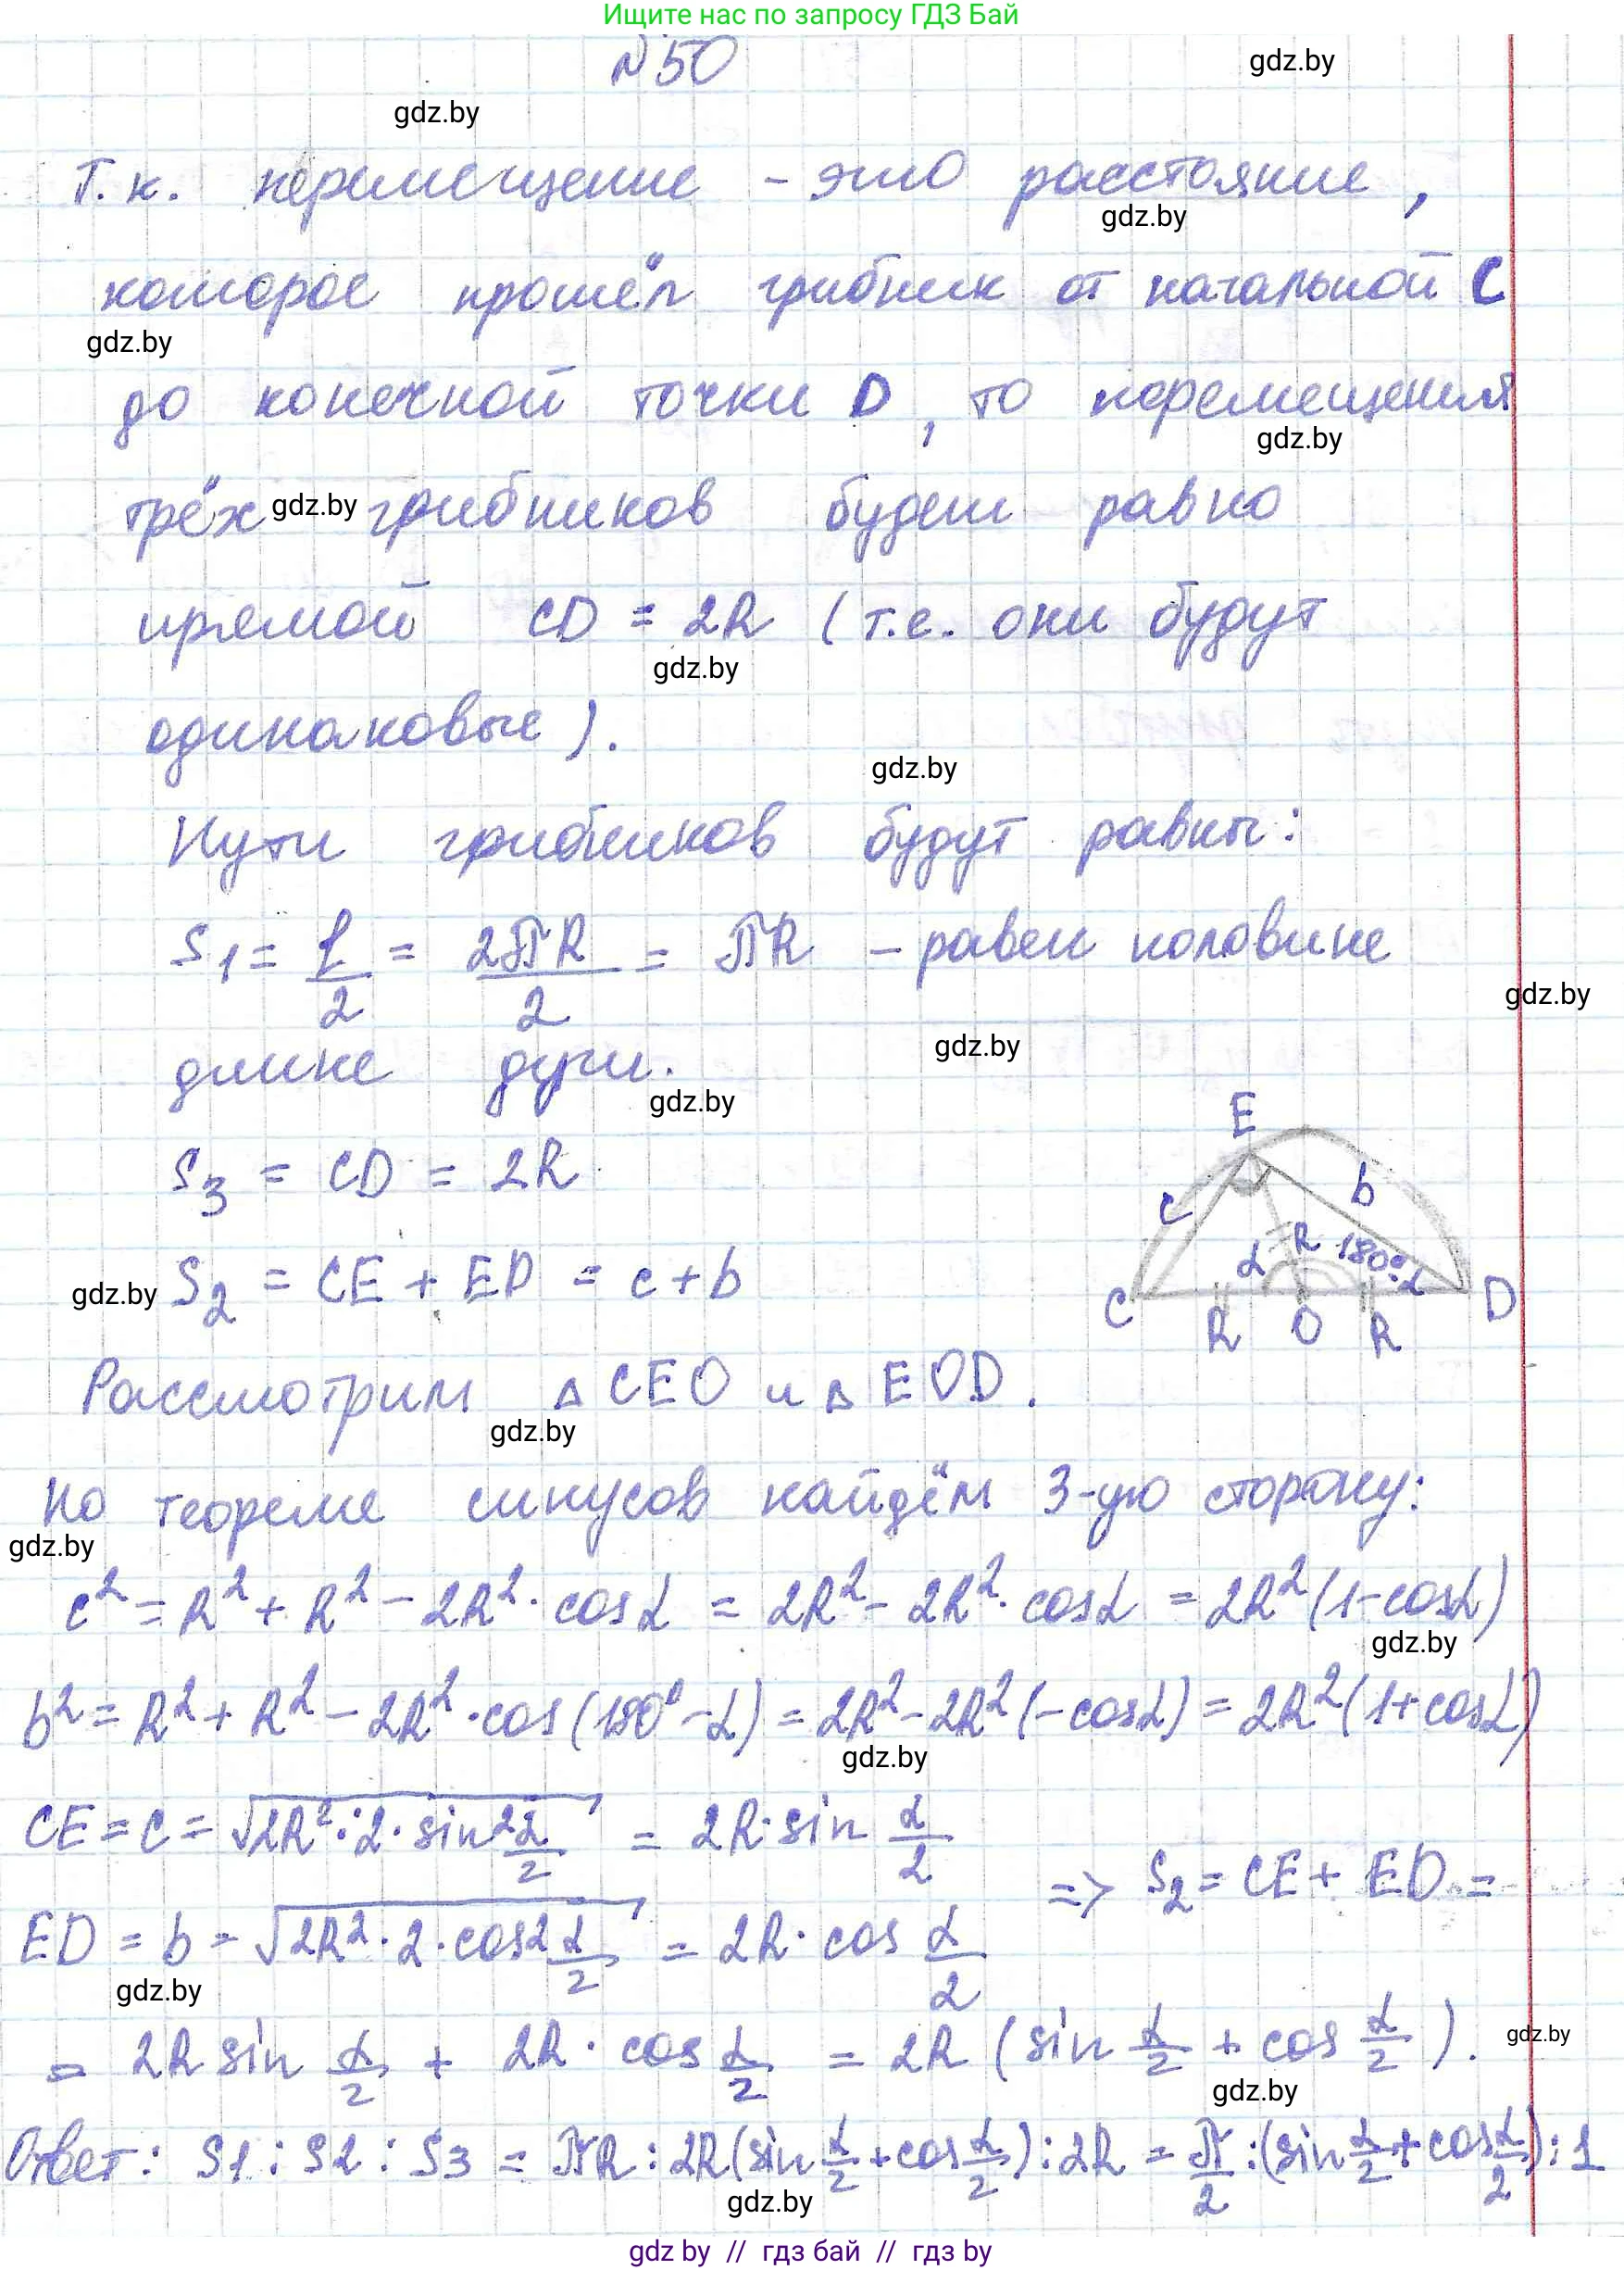 Ищите нас по запросу ГДЗ Бай
№50
gdz.by
gdz.by
Т.к. перемещение - это расстояние,
gdz.by
которое прошёл грибник от начальной C
gdz.by
до конечной точки D, то перемещения
gdz.by
трёх gdz.by грибников будет равно
прямой CD = 2R (т.е. они будут
gdz.by
одинаковые).
gdz.by
Пути грибников будут равны:
S1 = l/2 = 2πR/2 = πR - равен половине
gdz.by
длине дуги.
gdz.by
gdz.by
S3 = CD = 2R
gdz.by S2 = CE + ED = c + b
E
c
b
R
α
180°-α
C
R
O
R
D
Рассмотрим △CEO и △EOD.
gdz.by
По теореме синусов найдём 3-ую сторону:
gdz.by
c² = R² + R² - 2R²·cosα = 2R² - 2R²·cosα = 2R²(1-cosα)
gdz.by
b² = R² + R² - 2R²·cos(180°-α) = 2R² - 2R²(-cosα) = 2R²(1+cosα)
gdz.by
CE = c = √2R²·2·sin²α/2 = 2R·sin α/2
=> S2 = CE + ED =
ED = b = √2R²·2·cos²α/2 = 2R·cos α/2
gdz.by
= 2R sin α/2 + 2R·cos α/2 = 2R (sin α/2 + cos α/2).
gdz.by
gdz.by
Ответ: S1 : S2 : S3 = πR : 2R(sin α/2 + cos α/2) : 2R = π/2 : (sin α/2 + cos α/2) : 1
gdz.by
gdz by // гдз бай // гдз by